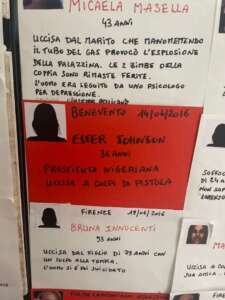 MICAELA MASELLA
43 ANNI
UCCISA DAL MARITO CHE MANOMETTENDO
IL TUBO DEL GAS PROVOCÒ L'ESPLOSIONE
DELLA PALAZZINA. LE 2 BIMBE DELLA
COPPIA SONO RIMASTE FERITE.
L'UOMO ERA SEGUITO DA UNO PSICOLOGO
PER DEPRESSIONE.
BENEVENTO 14/06/2016
ESTER JOHNSON
36 ANNI
PROSTITUTA NIGERIANA
UCCISA A COLPI DI PISTOLA
FIRENZE 19/06/2016
BRUNA INNOCENTI
93 ANNI
UCCISA DAL FIGLIO DI 73 ANNI CON
UN COLPO ALLA TEMPIA.
L'UOMO SI È POI SUICIDATO
SOFFOC
DI 24 A
NON SOP
MA
UCCISA
A CO
SUA AMICA